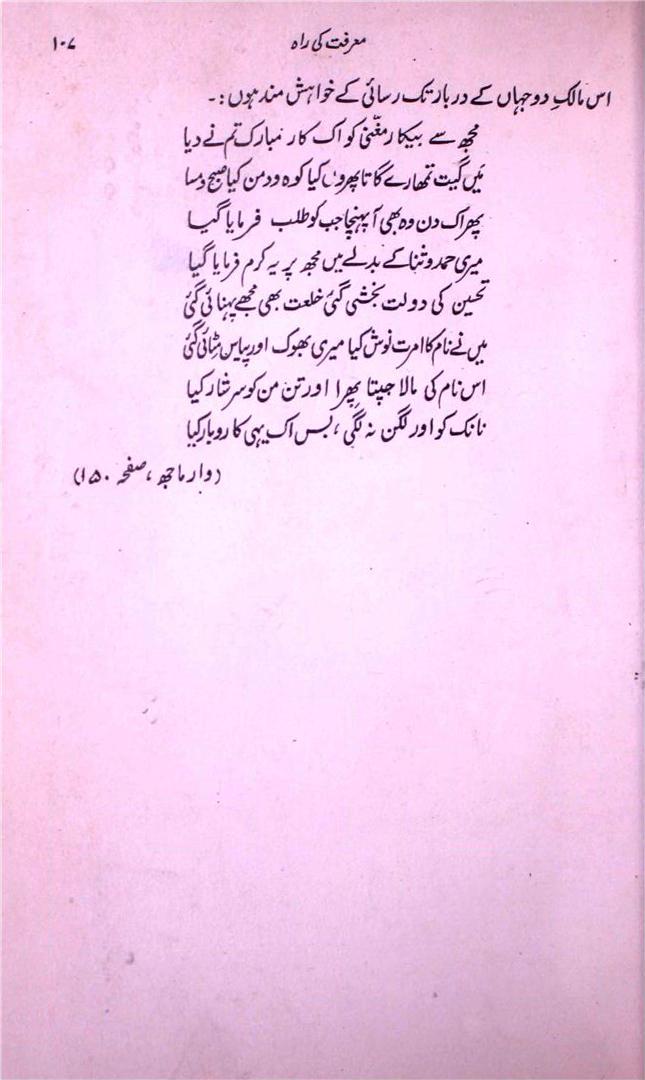 معرفت کی راہ ۱۰۷
اس مالکِ دو جہاں کے دربار تک رسائی کے خواہش مند ہوں :۔
مجھ سے بیکار مغنّی کو اک کار مبارک تم نے دیا
میں گیت تمھارے گاتا پھروں کیا کوہ و دمن کیا صبح و مسا
پھر اک دن وہ بھی آ پہنچا جب کو طلب فرمایا گیا
میری حمد و ثنا کے بدلے میں مجھ پر یہ کرم فرمایا گیا
تحسین کی دولت بخشی گئی خلعت بھی مجھے پہنائی گئی
میں نے نام کا امرت نوش کیا میری بھوک اور پیاس مٹائی گئی
اس نام کی مالا جپتا پھرا اور تن من کو سرشار کیا
نانک کو اور لگن نہ لگی ، بس اک یہی کاروبار کیا
(وار ماجھ ، صفحہ ۱۵۰)